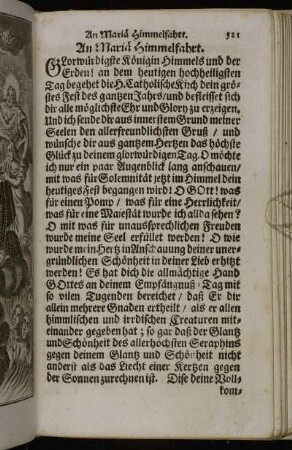 An Mariä Himmelfahrt. 521
An Mariä Himmelfahrt.
GLorwürdigste Königin Himmels und der
Erden! an dem heutigen hochheiligsten
Tag begehet die H. Catholische Kirch dein grö-
stes Fest des gantzen Jahrs/ und befleisset sich
dir alle möglichste Ehr und Glory zu erzeigen,
Und ich sende dir aus innerstem Grund meiner
Seelen den allerfreundlichsten Gruß / und
wünsche dir aus gantzem Hertzen das höchste
Glück zu deinem glorwürdigen Tag. O möchte
ich nur ein paar Augenblick lang anschauen/
mit was für Solemnität jetzt im Himmel dein
heutiges Fest begangen wird! O GOtt! was
für einen Pomp / was für eine Herrlichkeit/
was für eine Majestät wurde ich allda sehen?
O mit was für unaussprechlichen Freuden
wurde meine Seel erfüllet werden! O wie
wurde mein Hertz in Anschauung deiner uner-
gründlichen Schönheit in deiner Lieb erhitzt
werden! Es hat dich die allmächtige Hand
GOttes an deinem Empfängnuß-Tag mit
so vilen Tugenden bereichet / daß Er dir
allein mehrere Gnaden ertheilt / als er allen
himmlischen und irrdischen Creaturen mit-
einander gegeben hat; so gar daß der Glantz
und Schönheit des allerhöchsten Seraphins
gegen deinem Glantz und Schönheit nicht
anderst als das Liecht einer Kertzen gegen
der Sonnen zurechnen ist. Dise deine Voll-
kom-